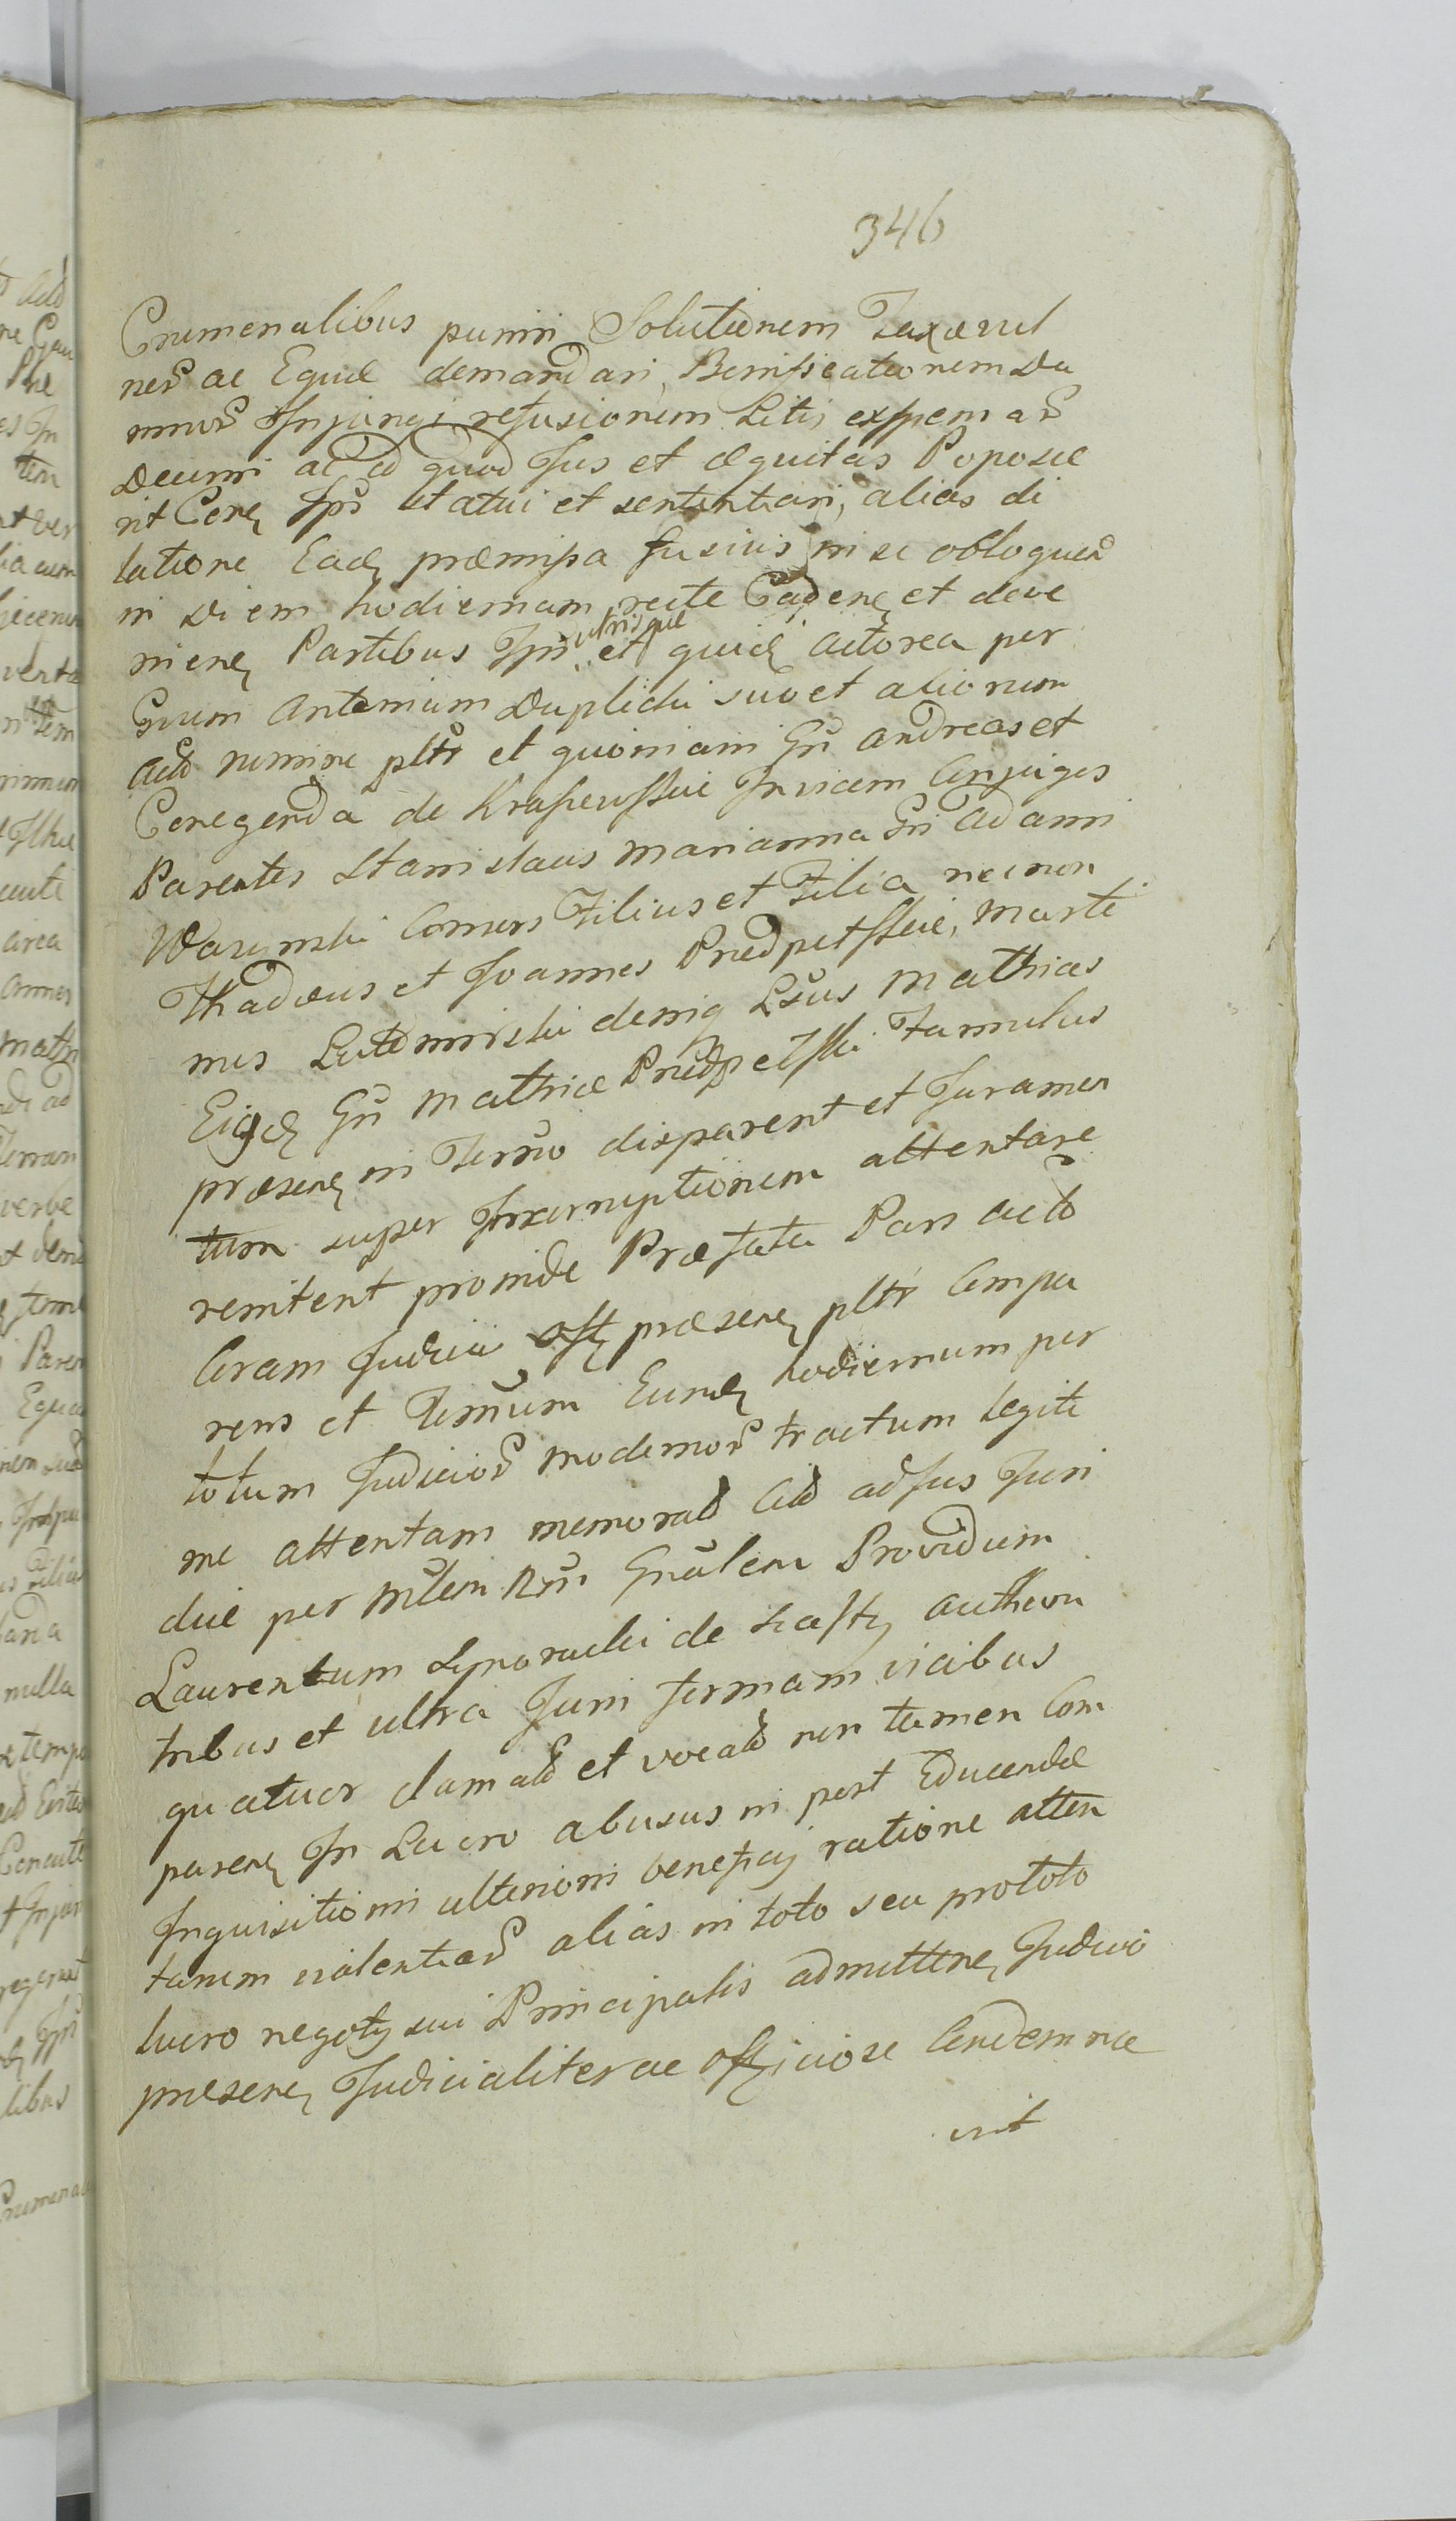 346
Crimenalibus puniri Solutionem Taxae vul
ner ac Equae demandari, Bonificationem Da
mnor Injungi refusionem Litis expensar
Decerni ac id quod Jus et aequitas Poposce
rit Coram Ipsis statui et sententiari, alias di
latione Eadem praemissa fusius in se obloquen
in Diem hodiernam recte Cadenti et deve
nienti Partibus Ipsis utrisque et quidem actorea per
Gsum Antonium Duplicki suo et aliorum
act nomine pltr et quoniam Gsi Andreas et
Conegenda de Kraszewskie Invicem Conjuges
Parentes Stanislaus Marianna Gsi Adami
Warynski Consors Filius et Filia necnon
Thadeus et Joannes Przedpelskie, Marti
nus Lutomirski deniq Lsus Mathias
Eiusdem Gsi Mathiae Przedpelski Famulus
praesenti in Termino disparent et Juramen
tum super Incorruptionem attentare
renitent proinde Praefata Pars acto
Coram Judicio Offo praesenti pltr Compa
rens et Terminum Eundem hodiernum per
totum Judicior modernor tractum legiti
me attentam memorat Citt ad Jus Juri
dice per Mlem Rgni Gnalem Providum
Laurentum Synoracki de Scasto authen
tribus et ultra Juris formam vicibus
quatuor clamatt et vocatt non tamen Com
paren In Lucro abusus ni post Educendae
Inquisitionis ulterioris beneficij ratione atten
tarum violentiar alias in toto seu pro toto
lucro negotij sui Principalis admitten, Judicio
praesen Judicialiter ac officiose Condemna
vit